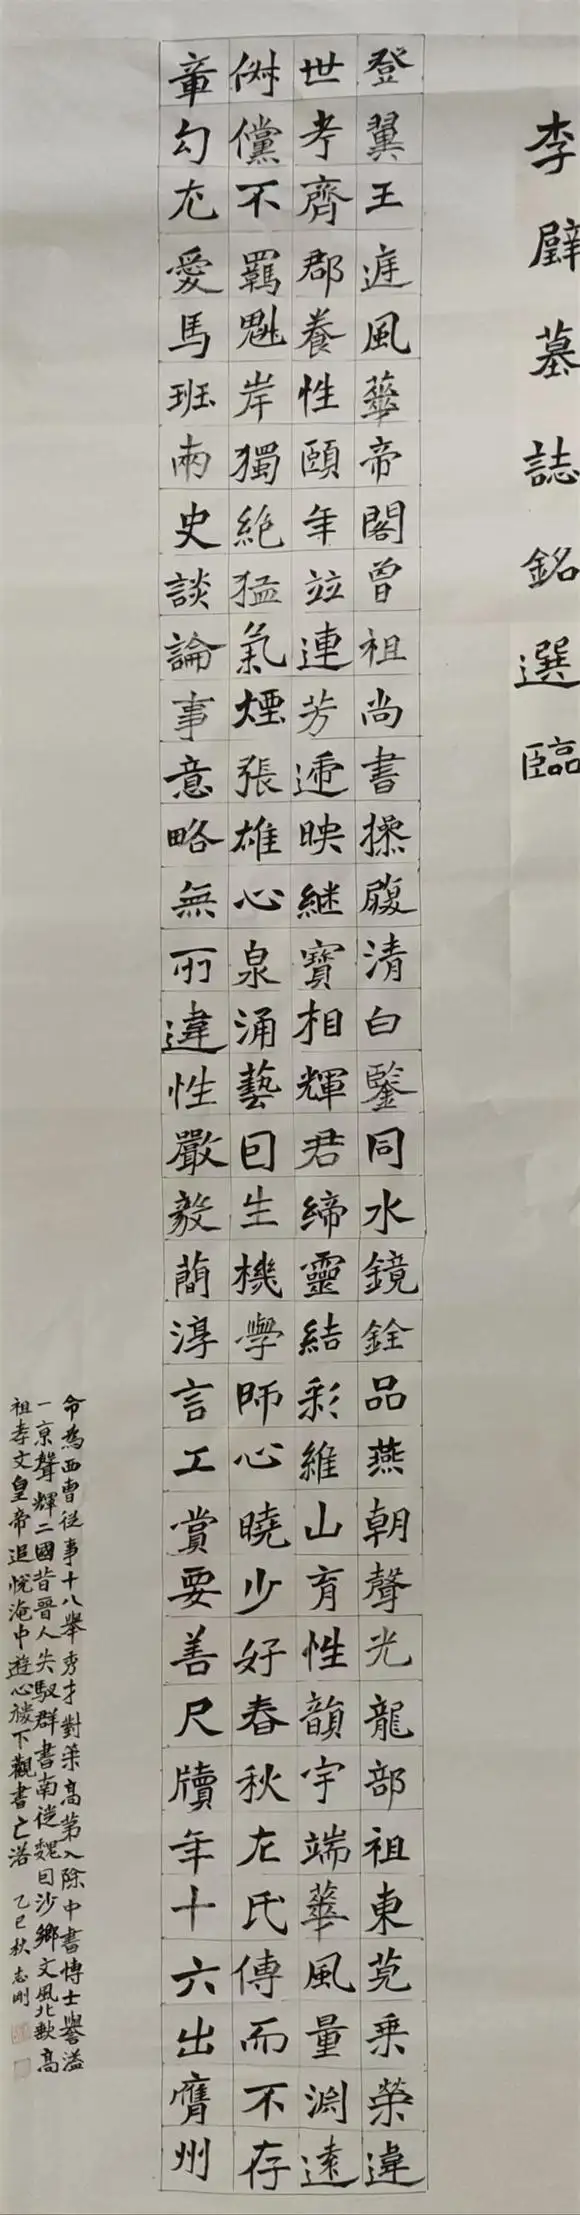 李璧墓誌銘選臨
登翼王庭風華帝閣曾祖尚書操履清白鑒同水鏡銓品燕朝聲光龍部祖東莞乗榮違
世考齊郡養性頤年竝連芳遞映継寶相輝君締靈結彩維山育性韻宇端華風量渊遠
俶儻不羈魁岸獨絶猛氣煙張雄心泉涌藝因生機學師心曉少好春秋左氏傳而不存
章勾尤愛馬班兩史談論事意略無所違性嚴毅蕳淳言工賞要善尺牘年十六出膺州
命為西曹從事十八舉秀才對策高第入除中書博士譽溢
一京聲輝二國昔晉人失馭群書南徙魏因沙鄉文風北缺高
祖孝文皇帝追悅淹中遊心稷下觀書亡落 乙巳秋 志剛